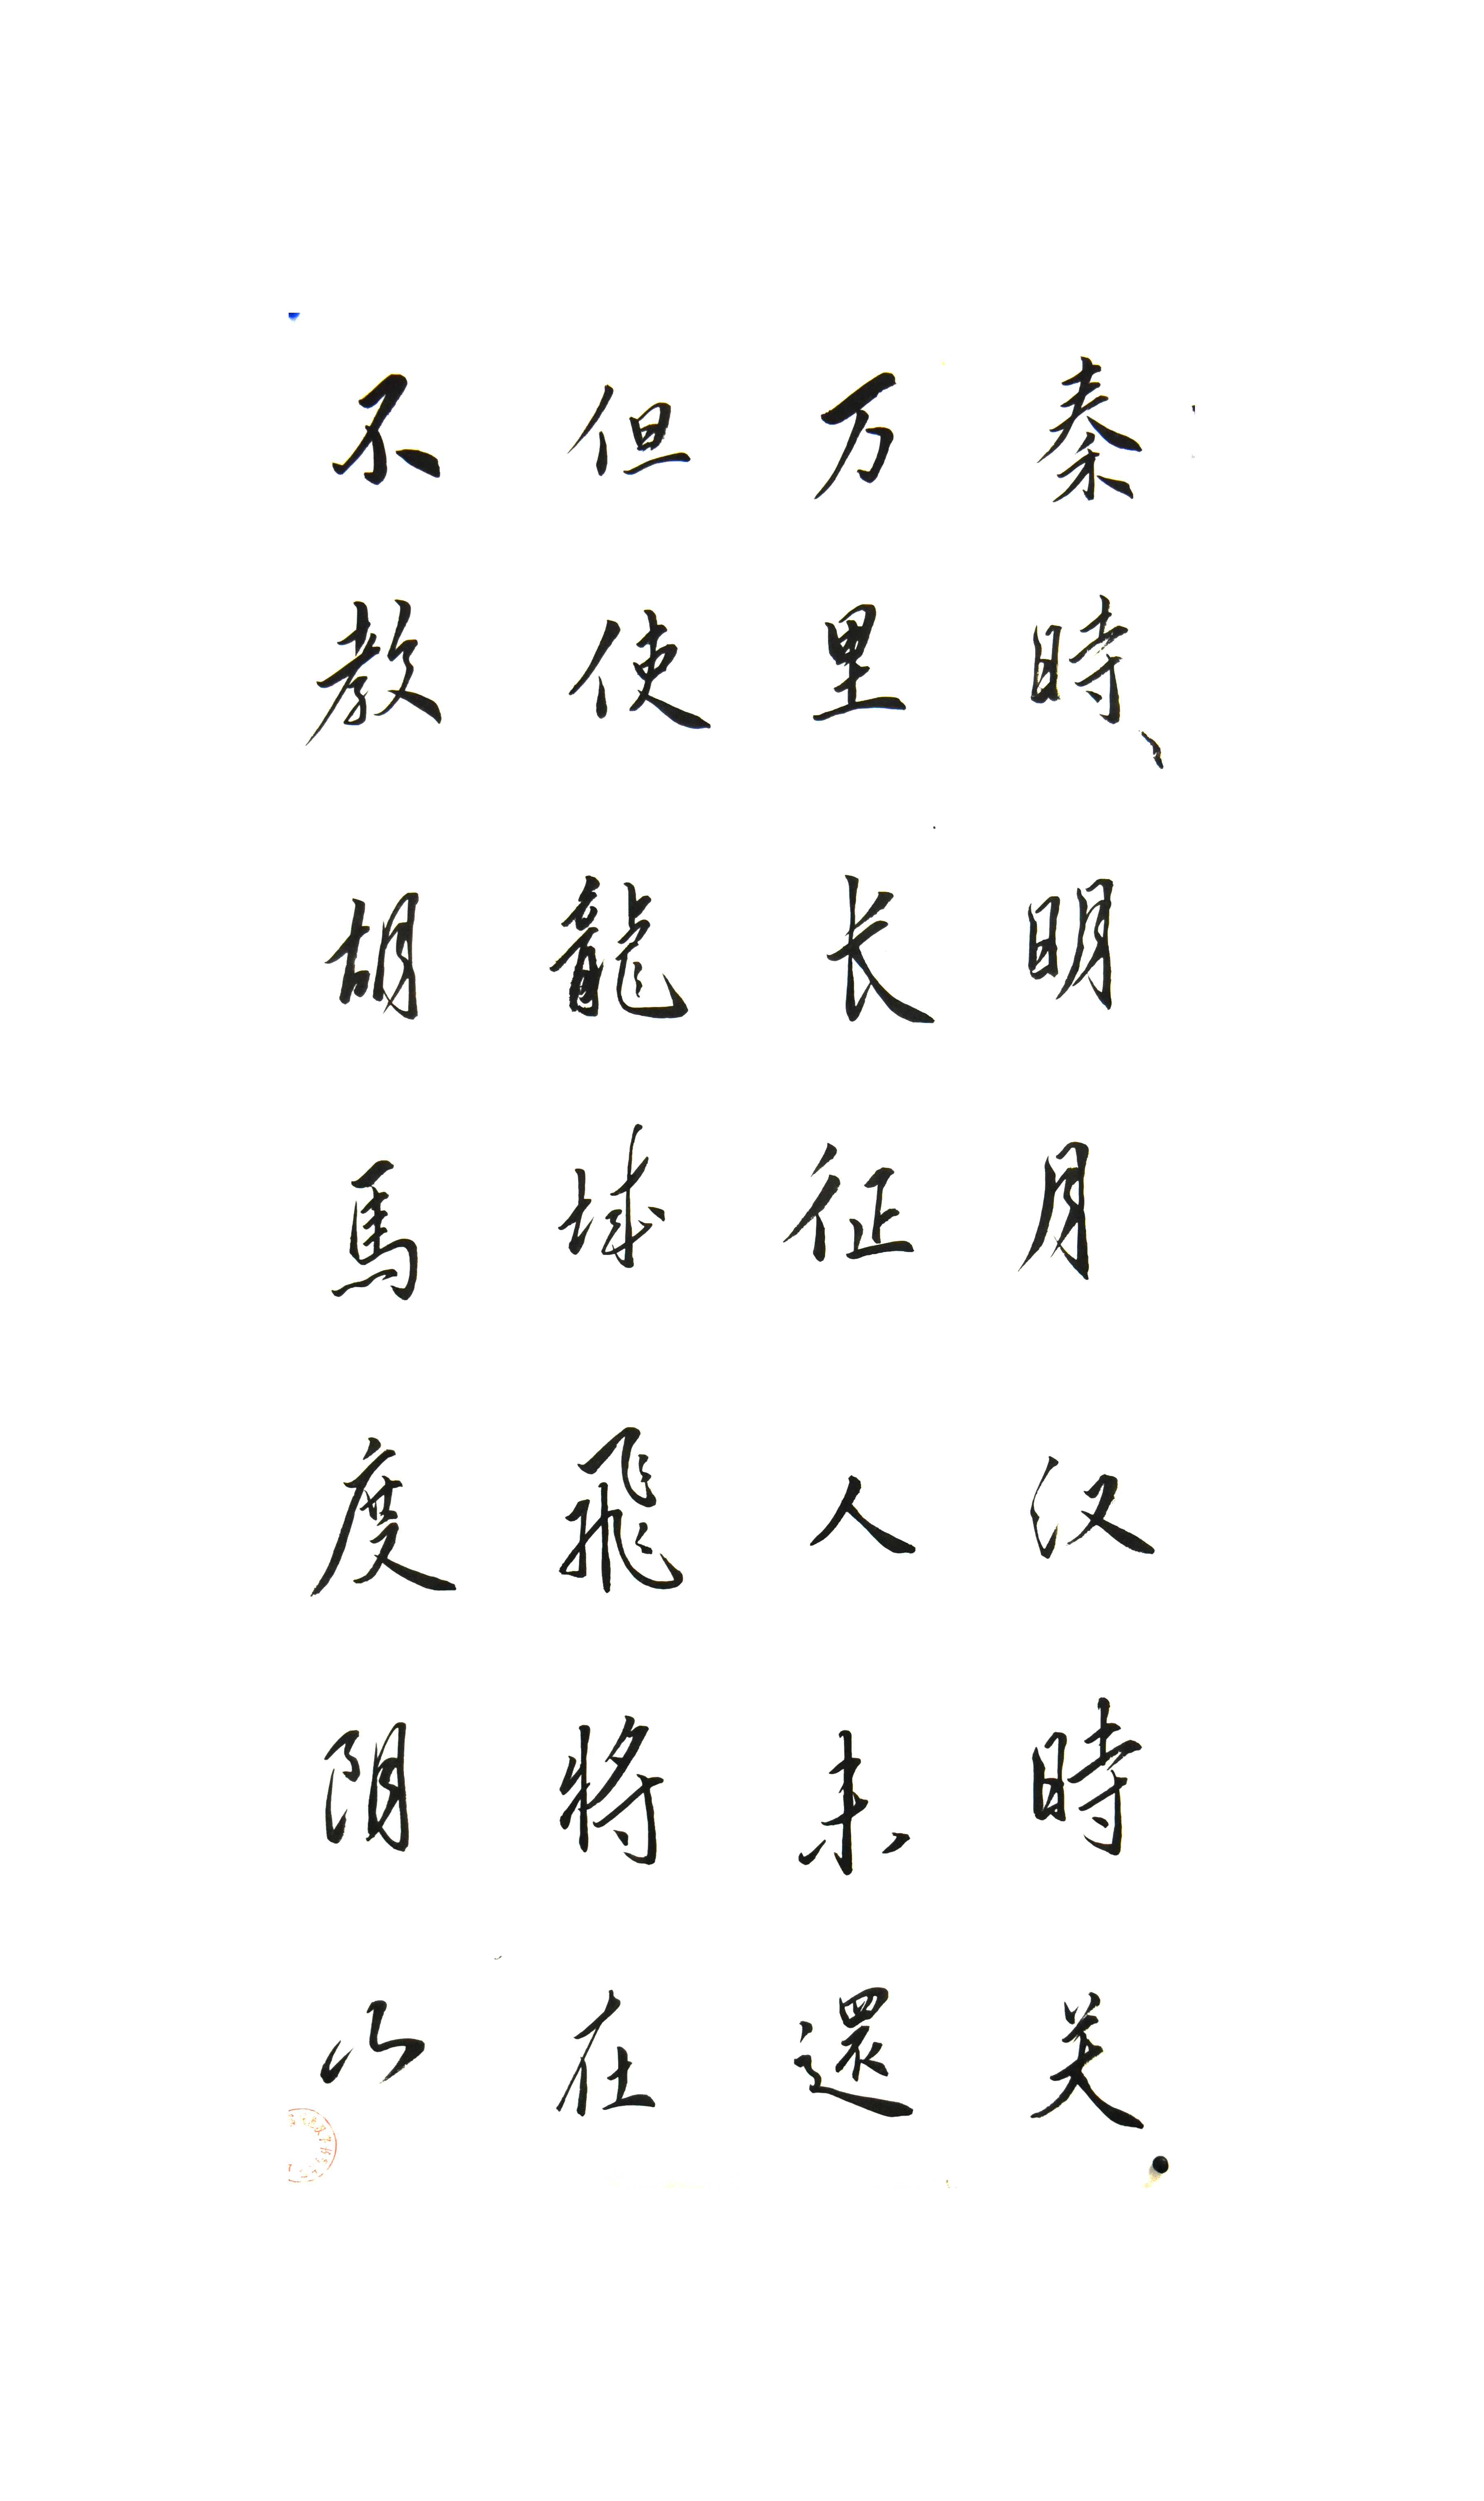 秦時明月汉時关
万里长征人未還
但使龍城飛將在
不教胡馬度阴山